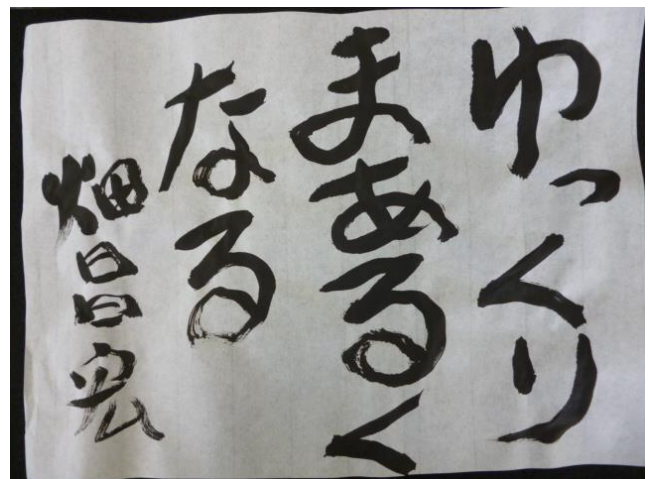 ゆっくり
まあるく
なる
畑昌宏